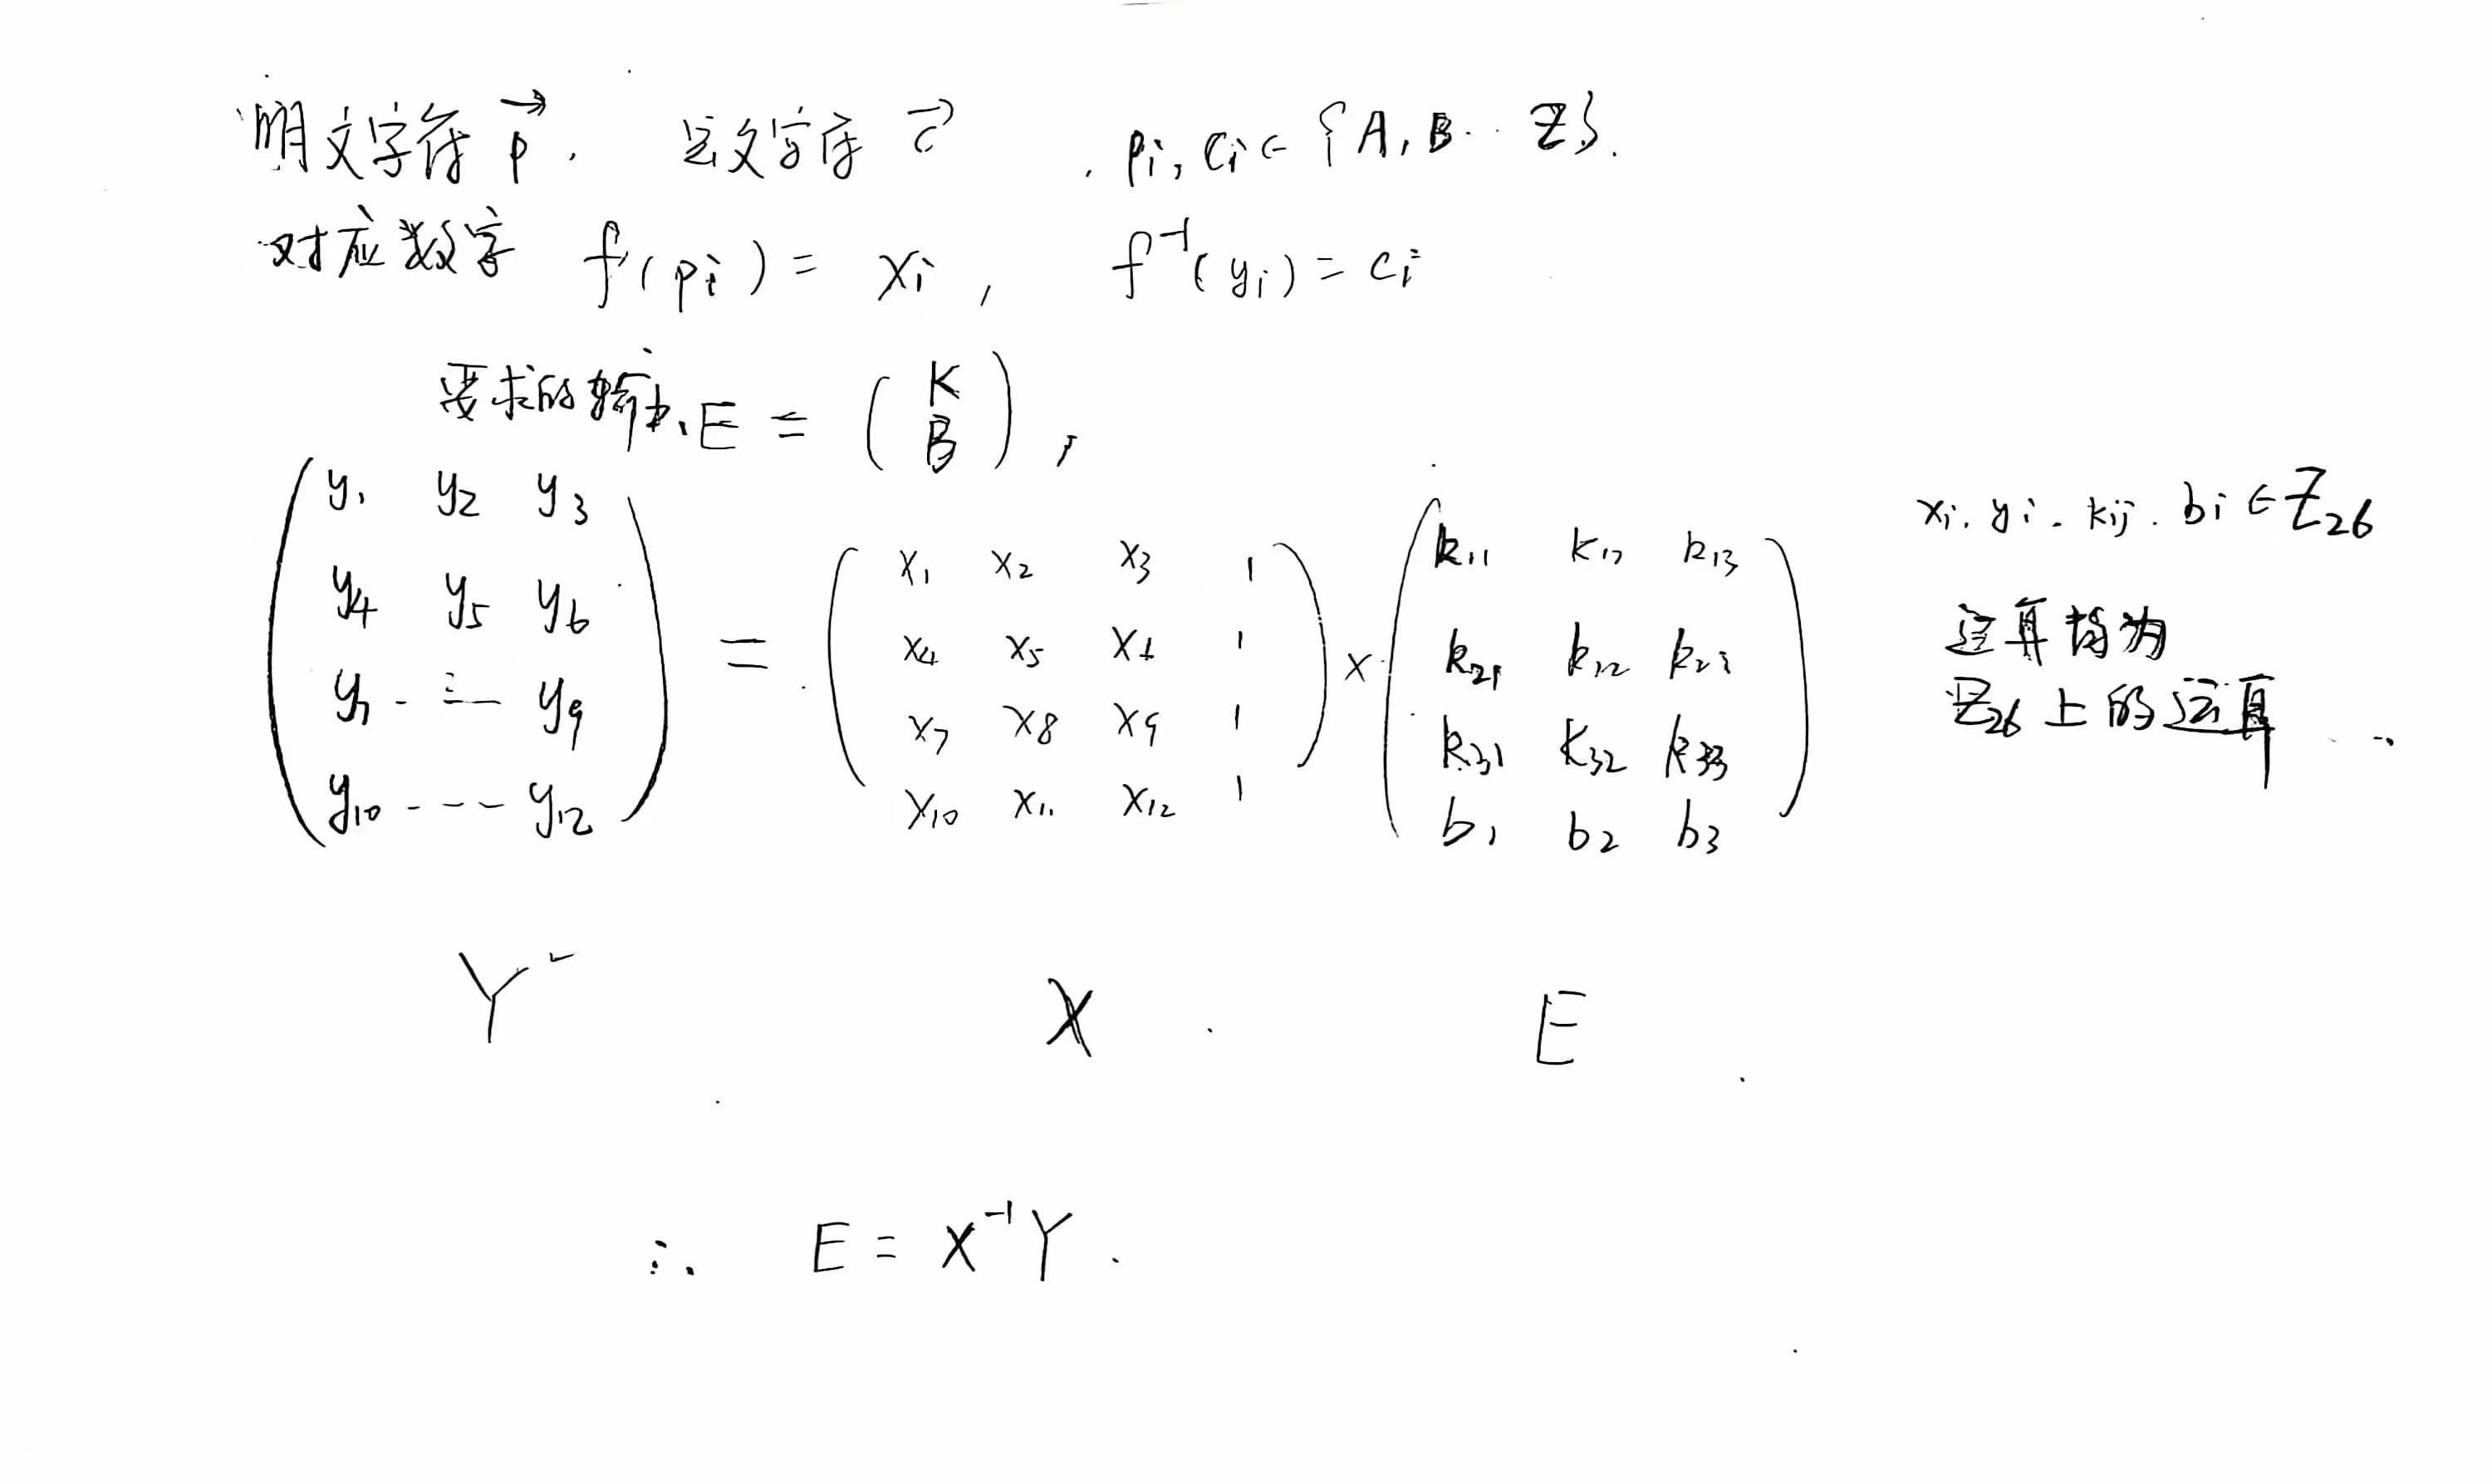 明文字符 p⃗ . 密文字符 c⃗ . pi, ci ∈ {A, B .. Z}.
对应数字 f(pi) = xi , f⁻¹(yi) = ci
要求的矩阵 E = (K B) ,
y1 y2 y3
y4 y5 y6
y7 - ... - y9
y10 - - - y12
=
x1 x2 x3 1
x4 x5 x6 1
x7 x8 x9 1
x10 x11 x12 1
×
k11 k12 k13
k21 k22 k23
k31 k32 k33
b1 b2 b3
xi, yi, kij, bi ∈ Z26
运算均为
Z26 上的运算
Y X E
∴ E = X⁻¹Y .